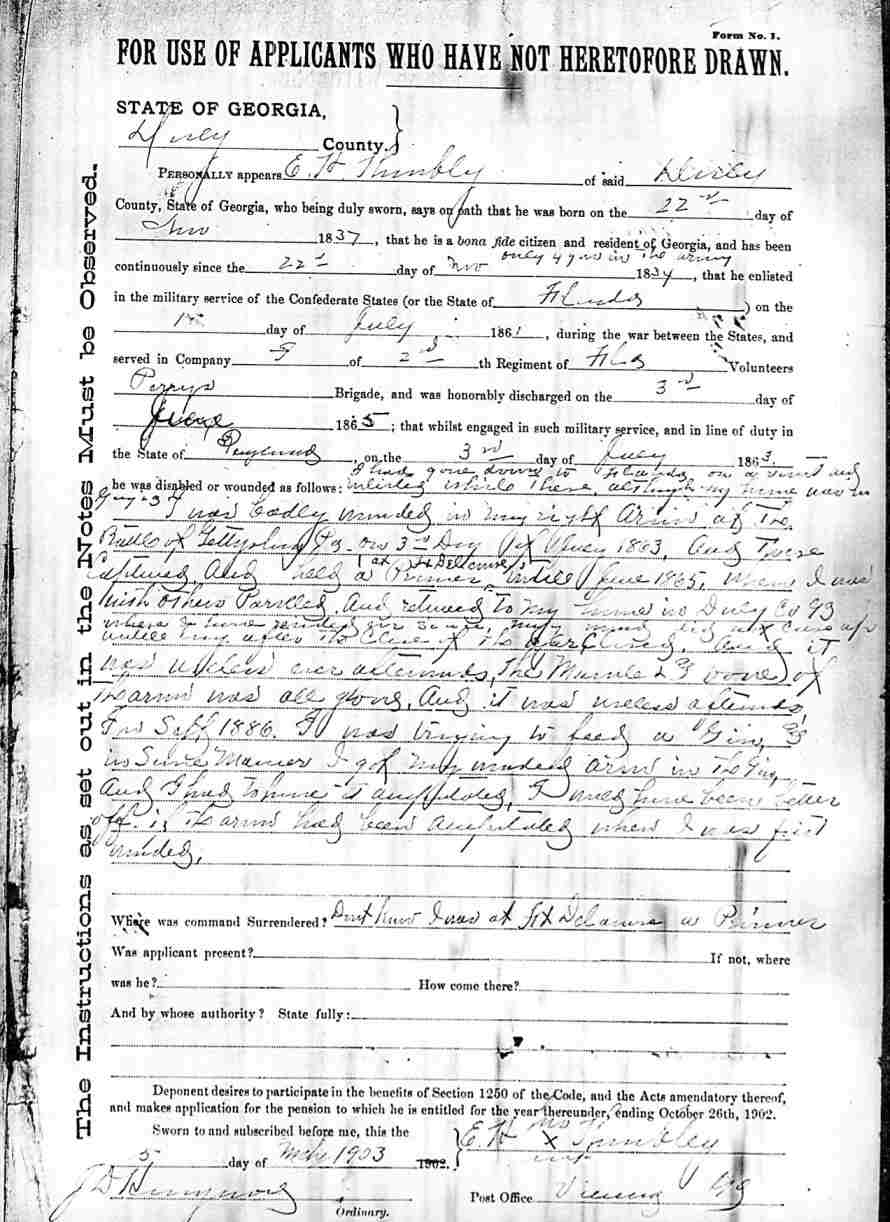 Form No. 1.
FOR USE OF APPLICANTS WHO HAVE NOT HERETOFORE DRAWN.
STATE OF GEORGIA,
Dooly County.
PERSONALLY appears E. H. of said Dooly
County, State of Georgia, who being duly sworn, says on oath that he was born on the 22nd day of
Nov 1837, that he is a bona fide citizen and resident of Georgia, and has been
only 4 years in the army
continuously since the 22d day of Nov 183, that he enlisted
in the military service of the Confederate States (or the State of Florida) on the
1st day of July 1861, during the war between the States, and
served in Company of 2nd th Regiment of Fla Volunteers
Perrys Brigade, and was honorably discharged on the 3rd day of
June 1865; that whilst engaged in such military service, and in line of duty in
the State of , on the 3rd day of July 1863.
I had gone down to Florida on a visit and
he was disabled or wounded as follows: inlisted while there, although my home was in
I was badly wounded in my right Arm at The
Battle of Gettysburg Pa on 3rd Day of July 1863, And
Captured, And held a Prisner, at Ft Delaware untill June 1865, when I was
with others Parolled, And returned to my home in Dooly Co Ga
where I have resided ever since, my wound did not cure up
untill long after The Close of The War Closed, And it
was useless ever afterwards, The Muscle & bone of
The arm was all gone, And it was useless afterwards,
In Sept 1886. I was trying to feed a Gin, &
in Some Manner I got my wounded arm in The Gin,
And I had to have it amputated, I would have been better
off if the arm had been amputated when I was first
wounded.
Where was command Surrendered? Dont know I was at Ft Delaware a Prisner
Was applicant present? If not, where
was he? How come there?
And by whose authority? State fully:
Deponent desires to participate in the benefits of Section 1250 of the Code, and the Acts amendatory thereof,
and makes application for the pension to which he is entitled for the year thereunder, ending October 26th, 1902.
Sworn to and subscribed before me, this the
E. H. X
5 day of 1903 1902.
mark
Ordinary.
Post Office Vienna Ga
The Instructions as set out in the Notes Must be Observed.